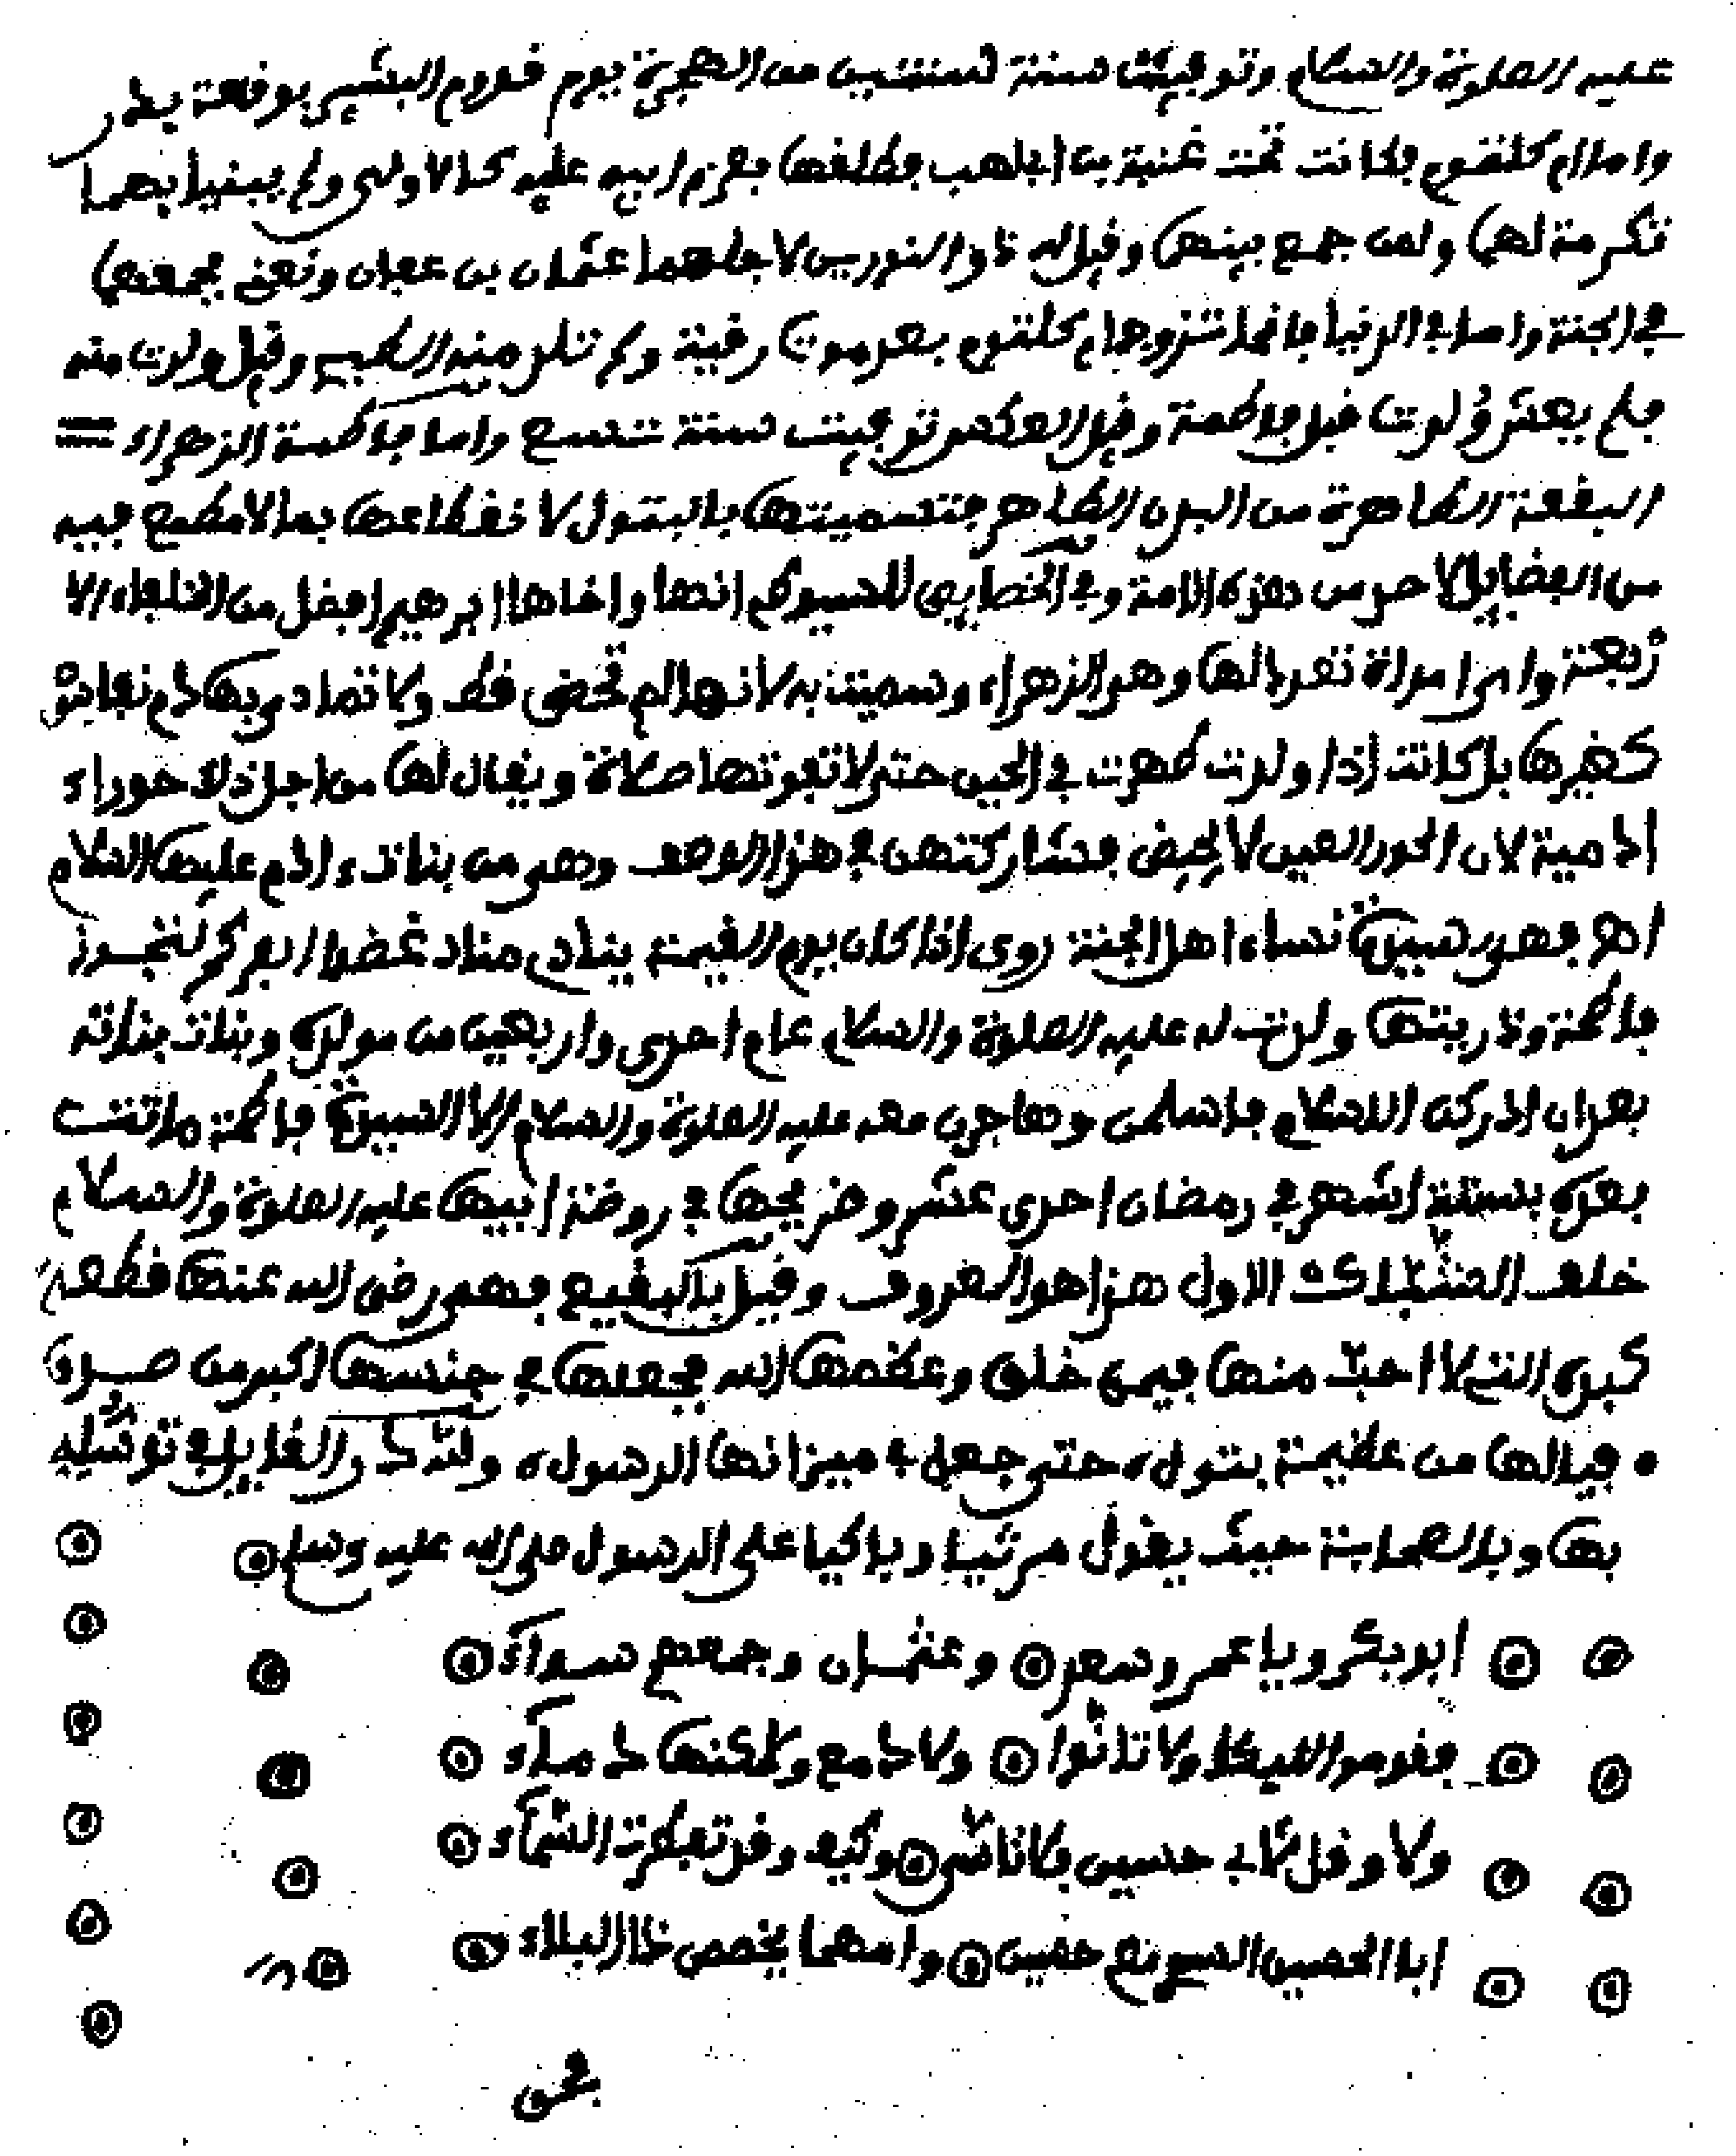 عليه الصلوة والسلام وتوفيت سنة ثنتين من الهجرة يوم قدوم البشير بوقعة بدر
واما ام كلثوم فكانت تحت عتبة بن ابي لهب فطلقها بعزم ابيه عليه كالاولى ولم يبنيا بهما
تكرمة لهما ولمن جمع بينهما وقيل له ذو النورين لاجلهما عثمان بن عفان ونعني بجمعهما
في الجنة واما في الدنيا فانما تزوج ام كلثوم بعد موت رقية ولم تلد منه الصحيح وقيل ولدت منه
فلم يعش وُلدت قبل فاطمة وقيل العكس توفيت سنة تسع واما فاطمة الزهراء
البضعة الطاهرة من البدن الطاهر فتسميتها بالبتول لانقطاعها بما لا مطمع فيه
من الفضايل لاحد من هذه الامة وفي الخصايص للسيوطي انها واخاها ابرهيم افضل من الخلفاء الا
ربعة واي امراة تعد لها وهو الزهراء وسميت به لانها لم تحض قط ولا تمادى بها دم نفاس
كغيرها بل كانت اذا ولدت طهرت في الحين حتى لا تفوتها صلاة ويقال لها من اجل ذلك حوراء
ادمية لان الحور العين لا يحيض فشاركتهن في هذا الوصف وهي من بنات ادم عليها السلام
اهـ فهي سيدة نساء اهل الجنة روي اذا كان يوم القيمة ينادي مناد غضوا ابصركم لتجوز
فاطمة وذريتها ولدت له عليه الصلوة والسلام عام احدى واربعين من مولده وبنات بناته
بعد ان ادركن الاسلام فاسلمن وهاجرن معه عليه الصلوة والسلام الا السيدة فاطمة ماتت
بعده بستة اشهر في رمضان احدى عشر وضريحها في روضة ابيها عليه الصلوة والسلام
خلف الشباك الاول هذا هو المعروف وقيل بالبقيع فهي رضي الله عنها قطعة
كبدي التي لا احبّ منها فيمن خلق وعظمها الله فجعلها في جنسها اكبر من صدق
فيا لها من عظيمة بتول، حتى جعل في ميزانها الرسول، ولله در القايل في توسله
بها وبالصحابة حيث يقول مرثيا وباكيا على الرسول صلى الله عليه وسلم
ابو بكر ويا عمر وسعد وعثمان وجمعهم سواء
فقوموا للبكا ولا تانوا ولا دامع ولاكنها دماء
ولا وقل لابي حسين فلا ناس وكيف وقد تفطرت السماء
ابا الحسين السبط نعم حسين وامهما يخصص ذا البلاء
فمن